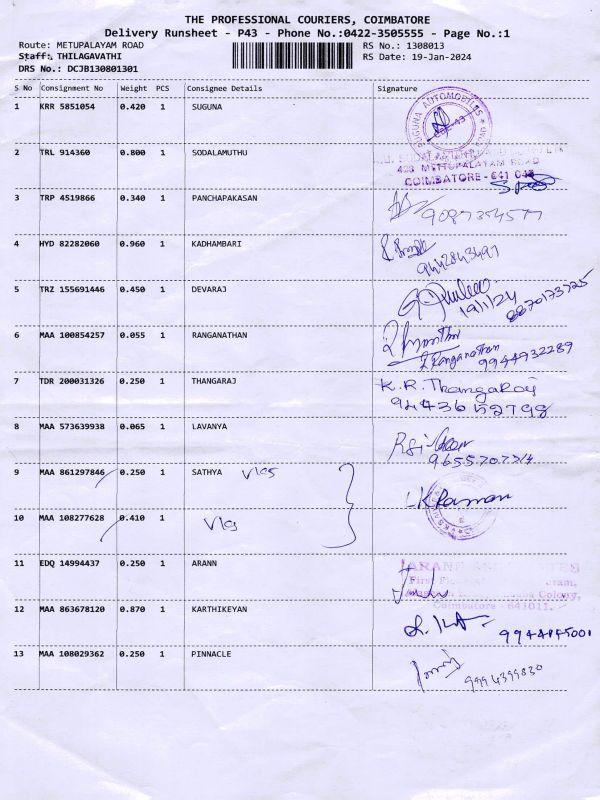 THE PROFESSIONAL COURIERS, COIMBATORE
Delivery Runsheet - P43 - Phone No.:0422-3505555 - Page No.:1
Route: METUPALAYAM ROAD RS No.: 1308013
Staff: THILAGAVATHI RS Date: 19-Jan-2024
DRS No.: DCJB130801301
S No Consignment No Weight PCS Consignee Details Signature
1 KRR 5851054 0.420 1 SUGUNA
SUGUNA AUTOMOBILES
2 TRL 914360 0.800 1 SODALAMUTHU
423 METTUPALAYAM ROAD
COIMBATORE - 641 043
3 TRP 4519866 0.340 1 PANCHAPAKASAN
4 HYD 82282060 0.960 1 KADHAMBARI
9442843497
5 TRZ 155691446 0.450 1 DEVARAJ
19/1/24 8870173725
6 MAA 100854257 0.055 1 RANGANATHAN
Ranganathan
9944932289
7 TDR 200031326 0.250 1 THANGARAJ
K.R. Thangaraj
9443652798
8 MAA 573639938 0.065 1 LAVANYA
9655707314
9 MAA 861297846 0.250 1 SATHYA
K Raman
10 MAA 108277628 0.410 1
11 EDQ 14994437 0.250 1 ARANN
Coimbatore - 641011.
12 MAA 863678120 0.870 1 KARTHIKEYAN
9944145001
13 MAA 108029362 0.250 1 PINNACLE
9994399830